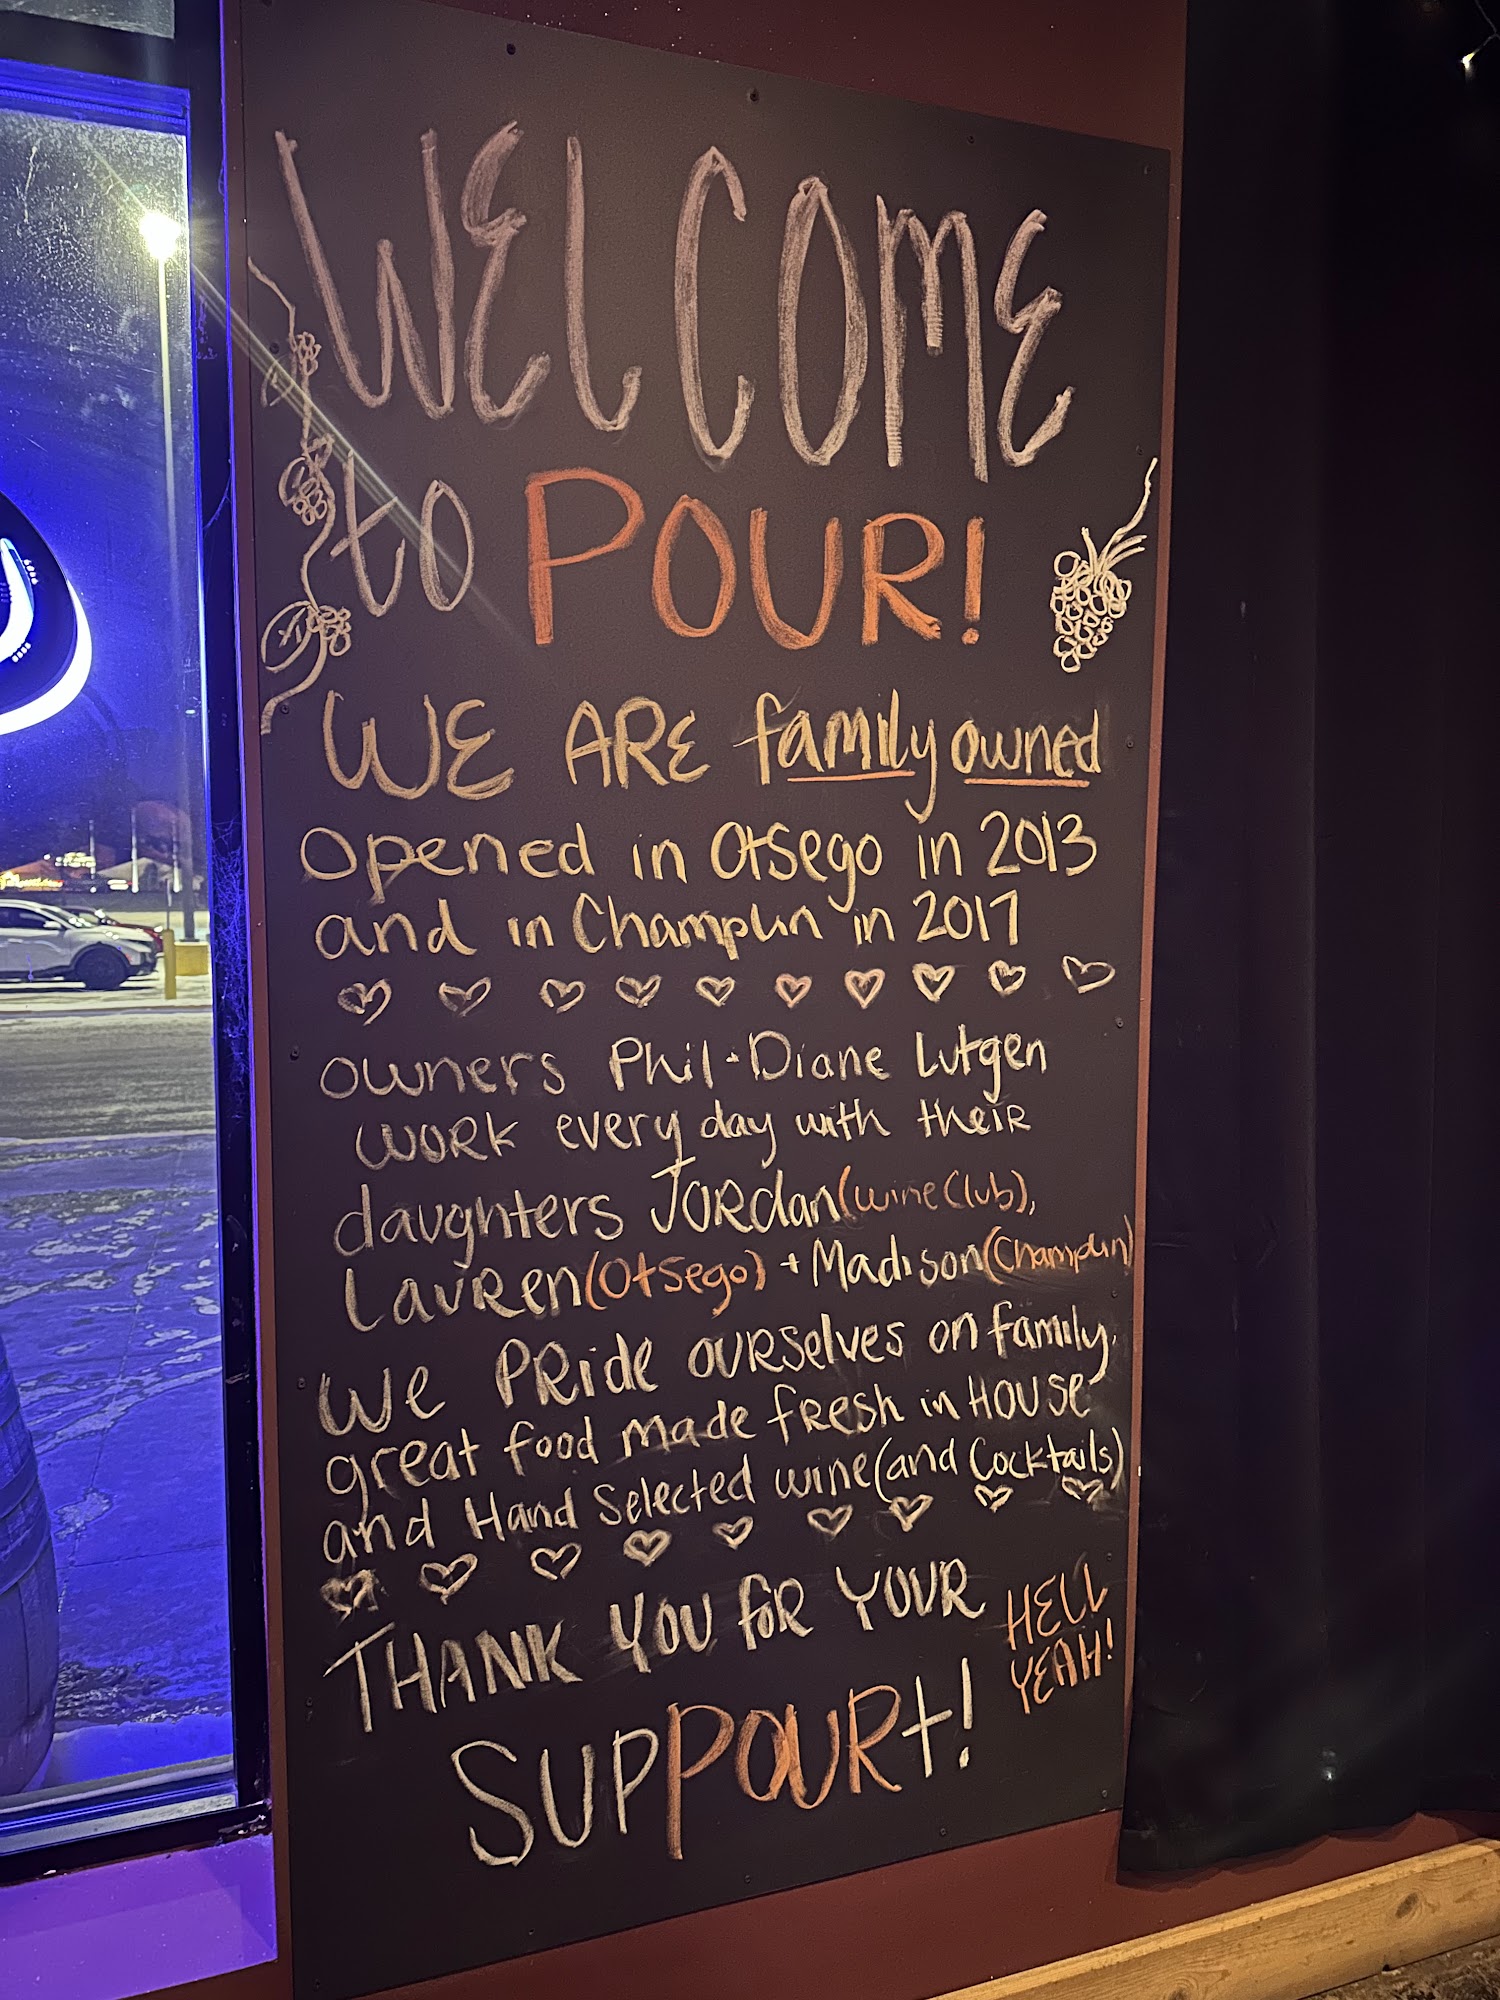 WELCOME
to POUR!
WE ARE family owned
opened in Otsego in 2013
and in Champlin in 2017
owners Phil + Diane Lutgen
WORK every day with theiR
daughters JORdan (wine Club),
LauRen (Otsego) + Madison (Champlin)
We PRide ouRselves on family,
great food made fResh in HOUSE
and Hand Selected wine (and Cocktails)
THANK YOU foR YOUR
SUPPOURt!
HELL
YEAH!